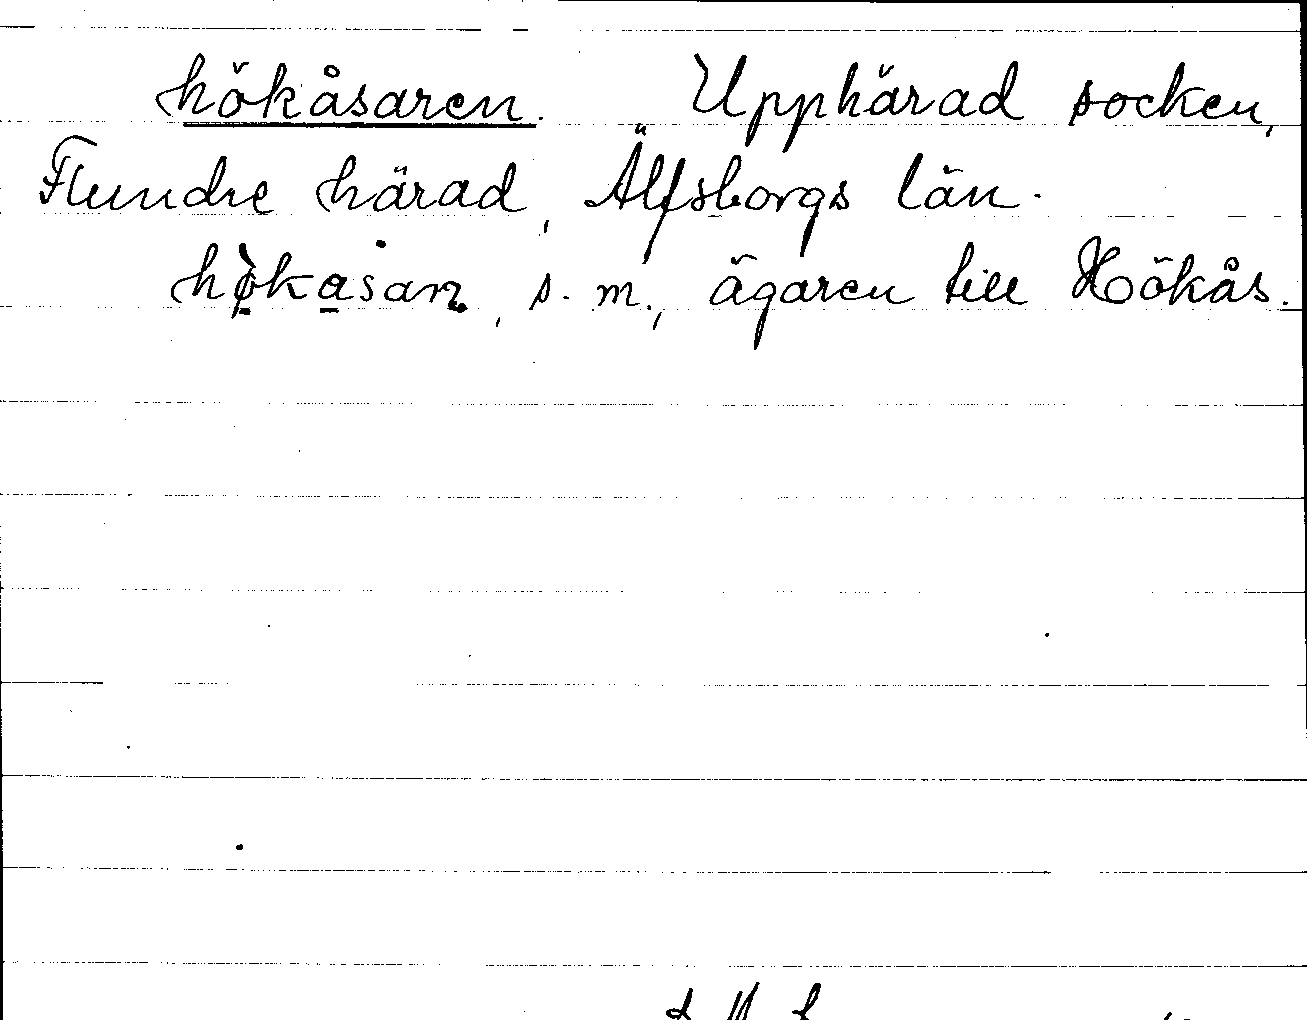 hökåsaren. Upphärad socken,
Flundre härad, Älfsborgs län.
hø̀kasan, s. m., ägaren till Hökås.